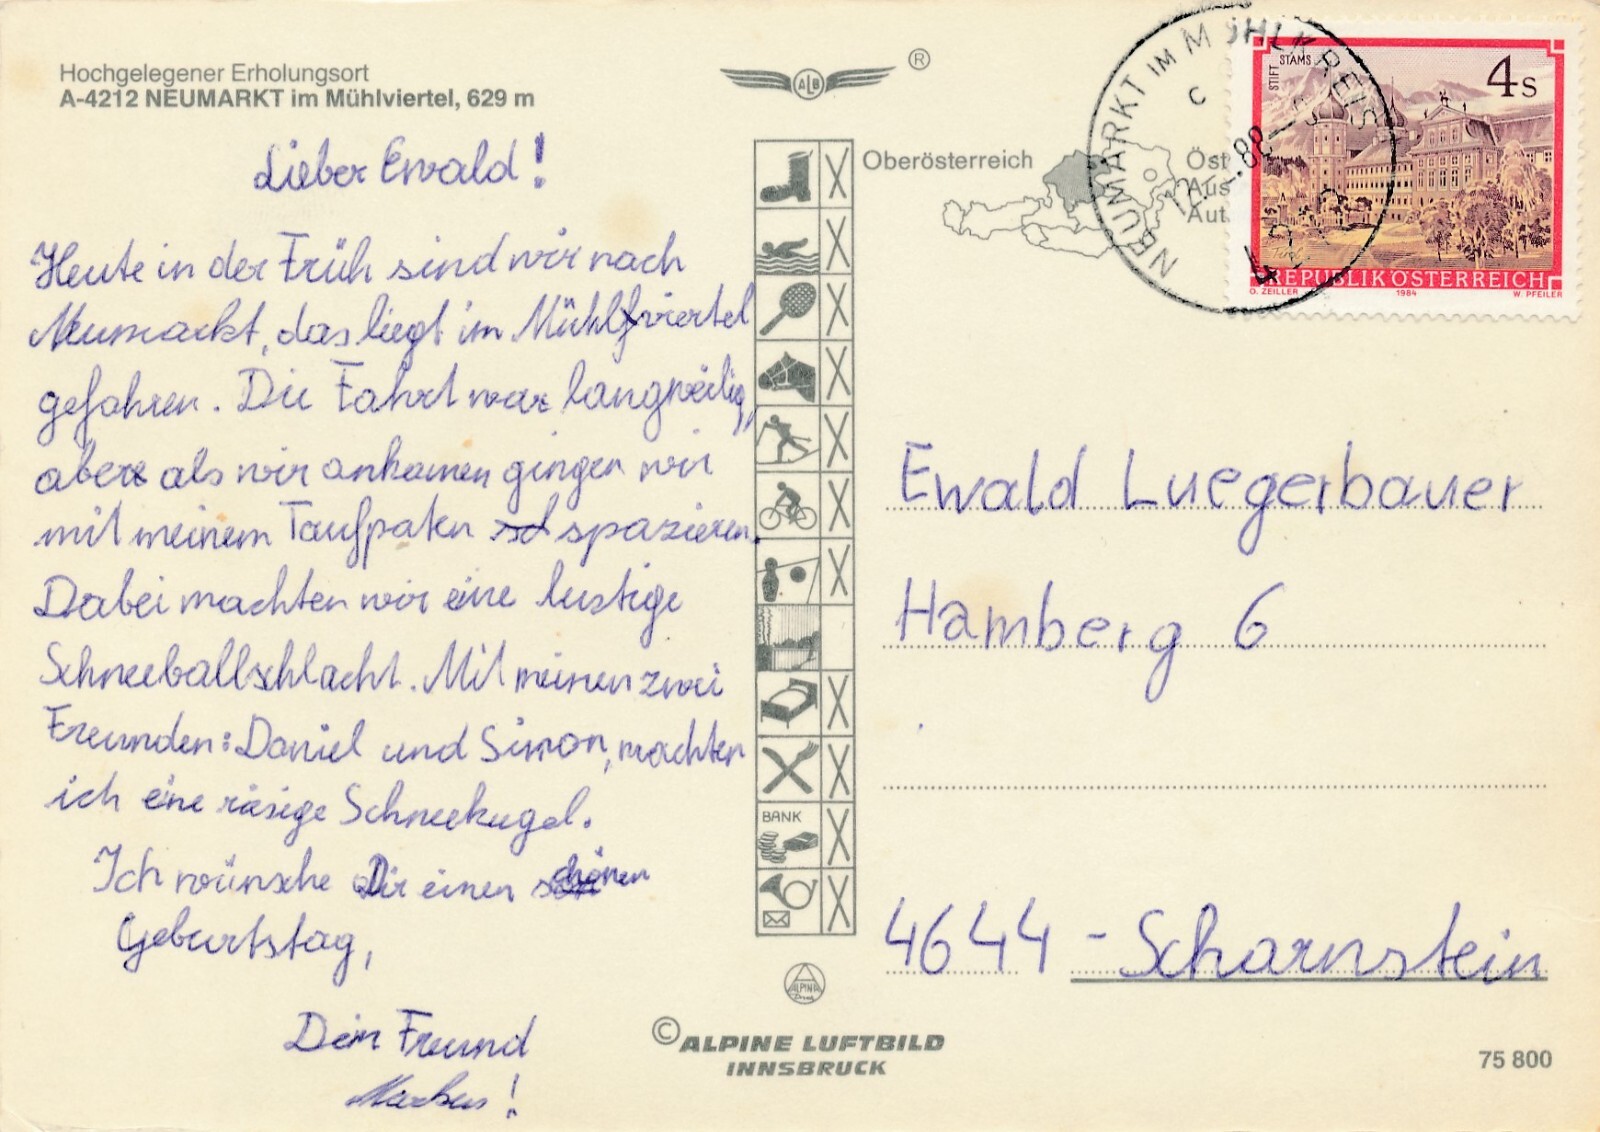 Hochgelegener Erholungsort
A-4212 NEUMARKT im Mühlviertel, 629 m
Lieber Ewald!
Heute in der Früh sind wir nach
Neumarkt, das liegt im Mühlviertel
gefahren. Die Fahrt war langweilig,
aber als wir ankamen gingen wir
mit meinem Taufpaten spazieren.
Dabei machten wir eine lustige
Schneeballschlacht. Mit meinen zwei
Freunden: Daniel und Simon, machten
ich eine räsige Schneekugel.
Ich wünsche Dir einen schönen
Geburtstag,
Dein Freund
Markus!
ALB ®
Oberösterreich
Öst
Aus
Aut
BANK
ALPINA
Druck
© ALPINE LUFTBILD
INNSBRUCK
NEUMARKT IM MÜHLKREIS
c
88
STIFT STAMS
4 S
REPUBLIK ÖSTERREICH
O. ZEILLER 1984 W. PFEILER
Ewald Luegerbauer
Hamberg 6
4644 - Scharnstein
75 800